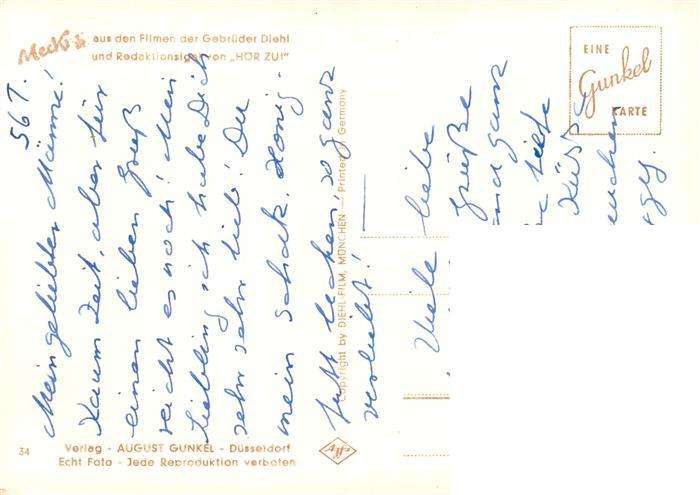 Mecki
aus den Filmen der Gebrüder Diehl
und Redaktionsigel von „HÖR ZU!"
EINE
Gunkel
KARTE
56 T.
Mein geliebter Männe!
Kaum Zeit, aber für
einen lieben Gruß
reicht es noch! Mein
Liebling ich habe Dich
sehr sehr lieb! Du
mein Schatz. Honig-
so ganz
verliebt!
Copyright by DIEHL-FILM, MÜNCHEN — Printed in Germany
Viele liebe
Grüße
und ganz
liebe
34
Verlag - AUGUST GUNKEL - Düsseldorf
Echt Foto - Jede Reproduktion verboten